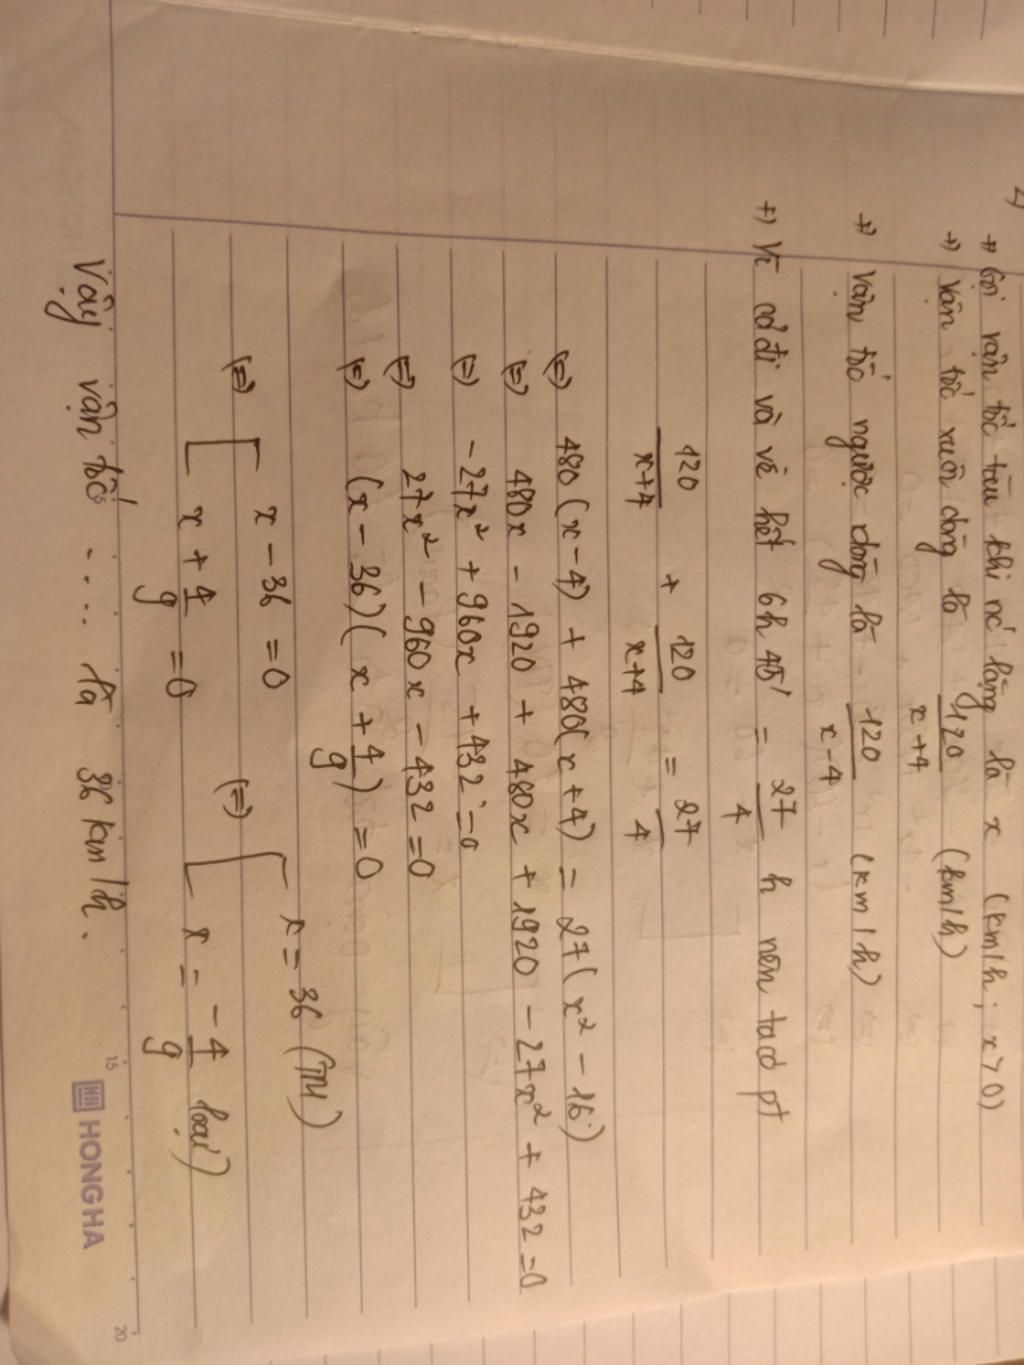 +) Gọi vận tốc tàu khi nc lặng là x (km/h; x>0)
+) vận tốc xuôi dòng là 120/(x+4) (km/h)
+) vận tốc ngược dòng là 120/(x-4) (km/h)
+) Vì cả đi và về hết 6h45' = 27/4 h nên ta có pt
120/(x+4) + 120/(x+4) = 27/4
(=) 480(x-4) + 480(x+4) = 27(x² - 16)
(=) 480x - 1920 + 480x + 1920 - 27x² + 432 = 0
(=) -27x² + 960x + 432 = 0
(=) 27x² - 960x - 432 = 0
(=) (x - 36)(x + 4/9) = 0
(=) [ x - 36 = 0 (=) [ x = 36 (TM)
x + 4/9 = 0 x = -4/9 loại)
Vậy vận tốc .... là 36 km/h.
15 HONG HA 20